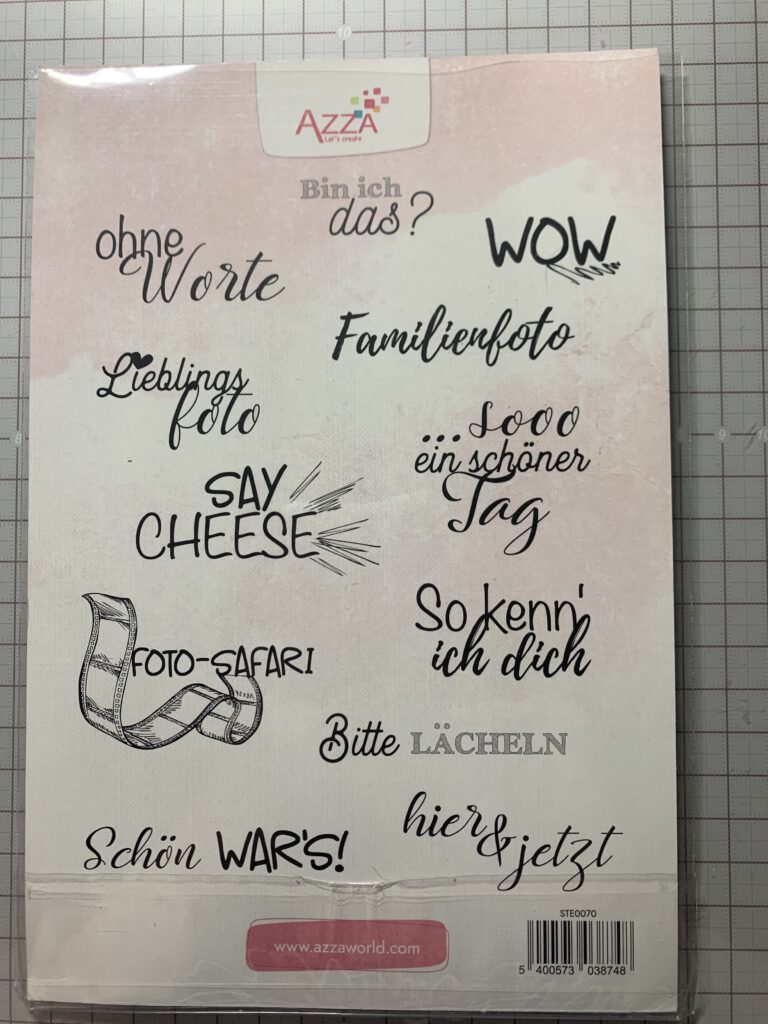 10
AZZA
Let's create
Bin ich
das?
ohne
Worte
WOW
Familienfoto
Lieblings
foto
...sooo
ein schöner
Tag
8
8
9
10
SAY
CHEESE
So kenn'
ich dich
FOTO-SAFARI
Bitte LÄCHELN
Schön WAR'S!
hier
& jetzt
STE0070
www.azzaworld.com
5 400573 038748